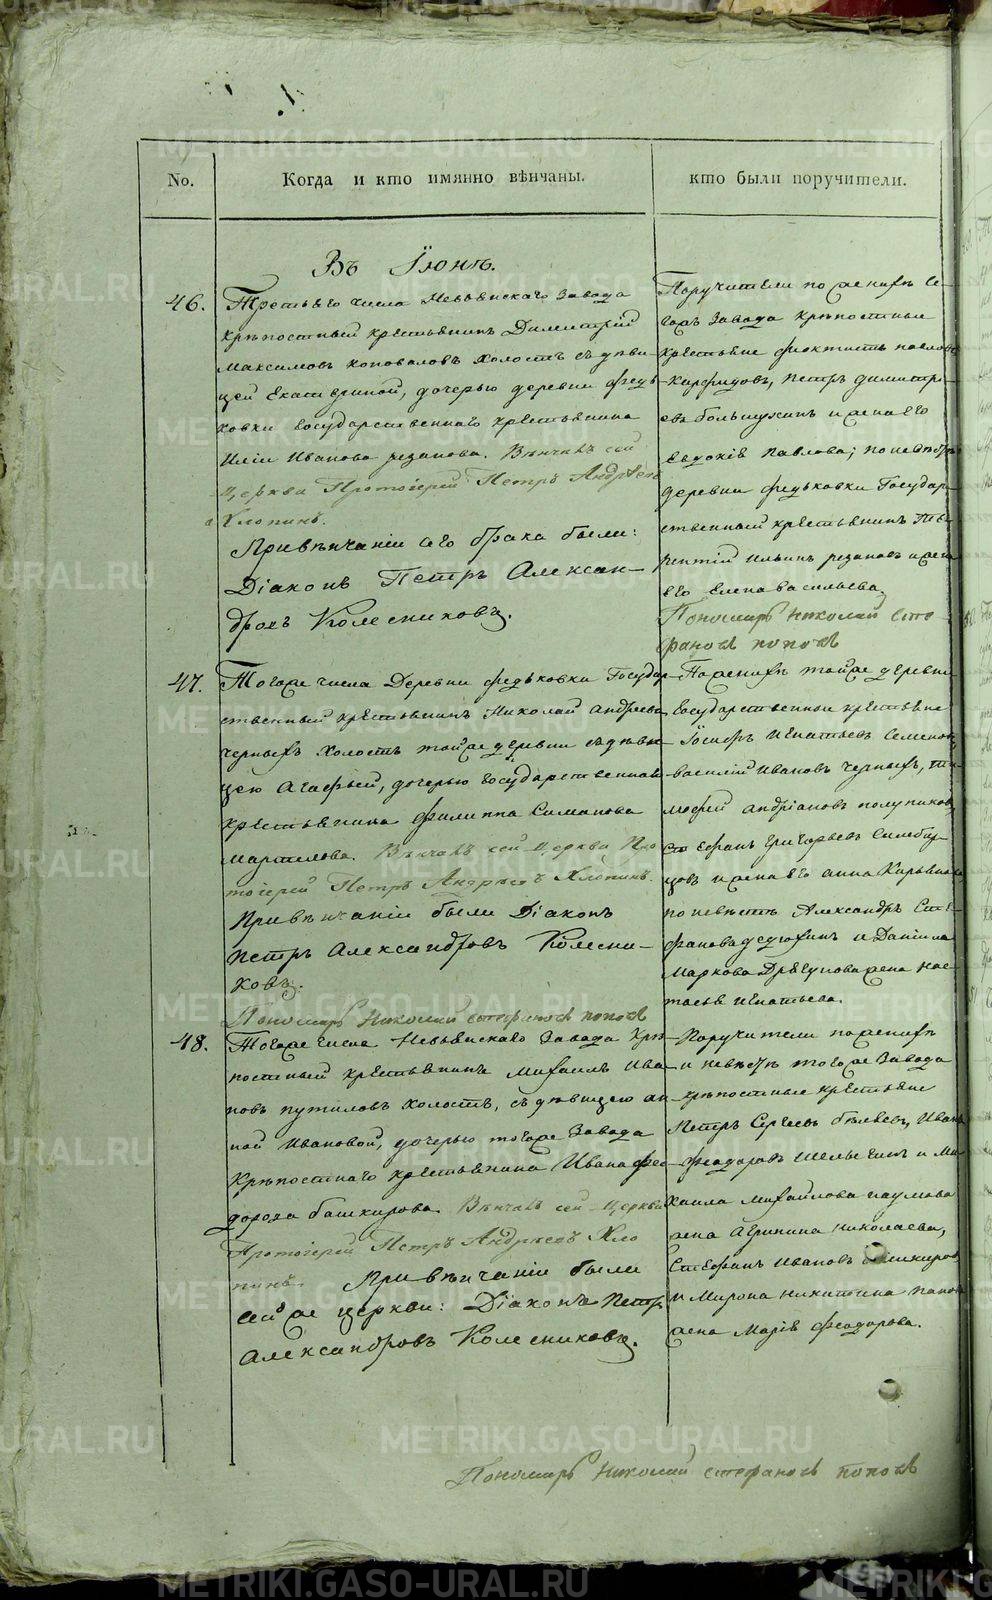 No.
Когда и кто имянно вѣнчаны.
кто были поручители.
Въ Іюнѣ.
46.
Третьяго числа Невьянскаго Завода
крѣпостный крестьянинъ Димитрій
Максимовъ коноваловъ холостъ съ дѣви-
цей Екатериной, дочерью деревни Ѳедь-
ковки Государственнаго крестьянина
Иліи Иванова резанова. Вѣнчалъ сей
церкви Протоіерей Петръ Андреевъ
Хлопинъ.
При вѣнчаніи сего брака были:
Діаконъ Петръ Алексан-
дровъ Колесниковъ.
Поручители по женихѣ се-
гожъ Завода крѣпостные
крестьяне Ѳиоктистъ павловъ
Карфидовъ, Петръ Димитрі-
евъ большухинъ и жена его
Евдокія Павлова; по невѣстѣ
деревни Ѳедьковки Государ-
ственный крестьянинъ
Ильинъ резановъ и жена
его Елена васильева.
Пономарь Николай сте-
фановъ поповъ
47.
Тогоже числа Деревни Ѳедьковки Государ-
ственный крестьянинъ Николай андреевъ
черныхъ холостъ тойже деревни съ дѣви-
цею Агафьей, дочерью Государственнаго
крестьянина Филиппа Симанова
мартилова. Вѣнчалъ сей церкви Про-
тоіерей Петръ Андреевъ Хлопинъ.
При вѣнчаніи были Діаконъ
Петръ Александровъ Колесни-
ковъ.
Пономарь Николай стефановъ поповъ
По женихѣ тойже деревни
Государственные крестьяне
Іосифъ Игнатьевъ Семеновъ,
василій Ивановъ черныхъ, ти-
мофей андріановъ полупиковъ,
Стефанъ Григорьевъ Симбир-
цовъ и жена его анна Кирьянова
по невѣстѣ Александръ Сте-
фановъ Федюхинъ и Даніила
Маркова Дрягунова жена Нас-
тасья Игнатьева.
48.
Тогоже числа Невьянскаго Завода Крѣ-
постный крестьянинъ михаилъ Ива-
новъ путиловъ холостъ, съ дѣвицею ан-
ной Ивановой, дочерью тогоже Завода
Крѣпостнаго крестьянина Ивана Фео-
дорова башкирова. Вѣнчалъ сей церкви
Протоіерей Петръ Андреевъ Хло-
пинъ. При вѣнчаніи были
сей же церкви: Діаконъ Петръ
Александровъ Колесниковъ.
Поручители по женихѣ
и невѣстѣ тогоже Завода
крѣпостные крестьяне
Петръ Сергеевъ бѣляевъ, Иванъ
Феодоровъ Шелыгинъ и Ми-
хаила михайлова наумова
жена Агрипина николаева,
Стефанъ Ивановъ башкировъ
и Мирона никитина
жена Марія Феодорова.
Пономарь Николай стефановъ поповъ
METRIKI.GASO-URAL.RU